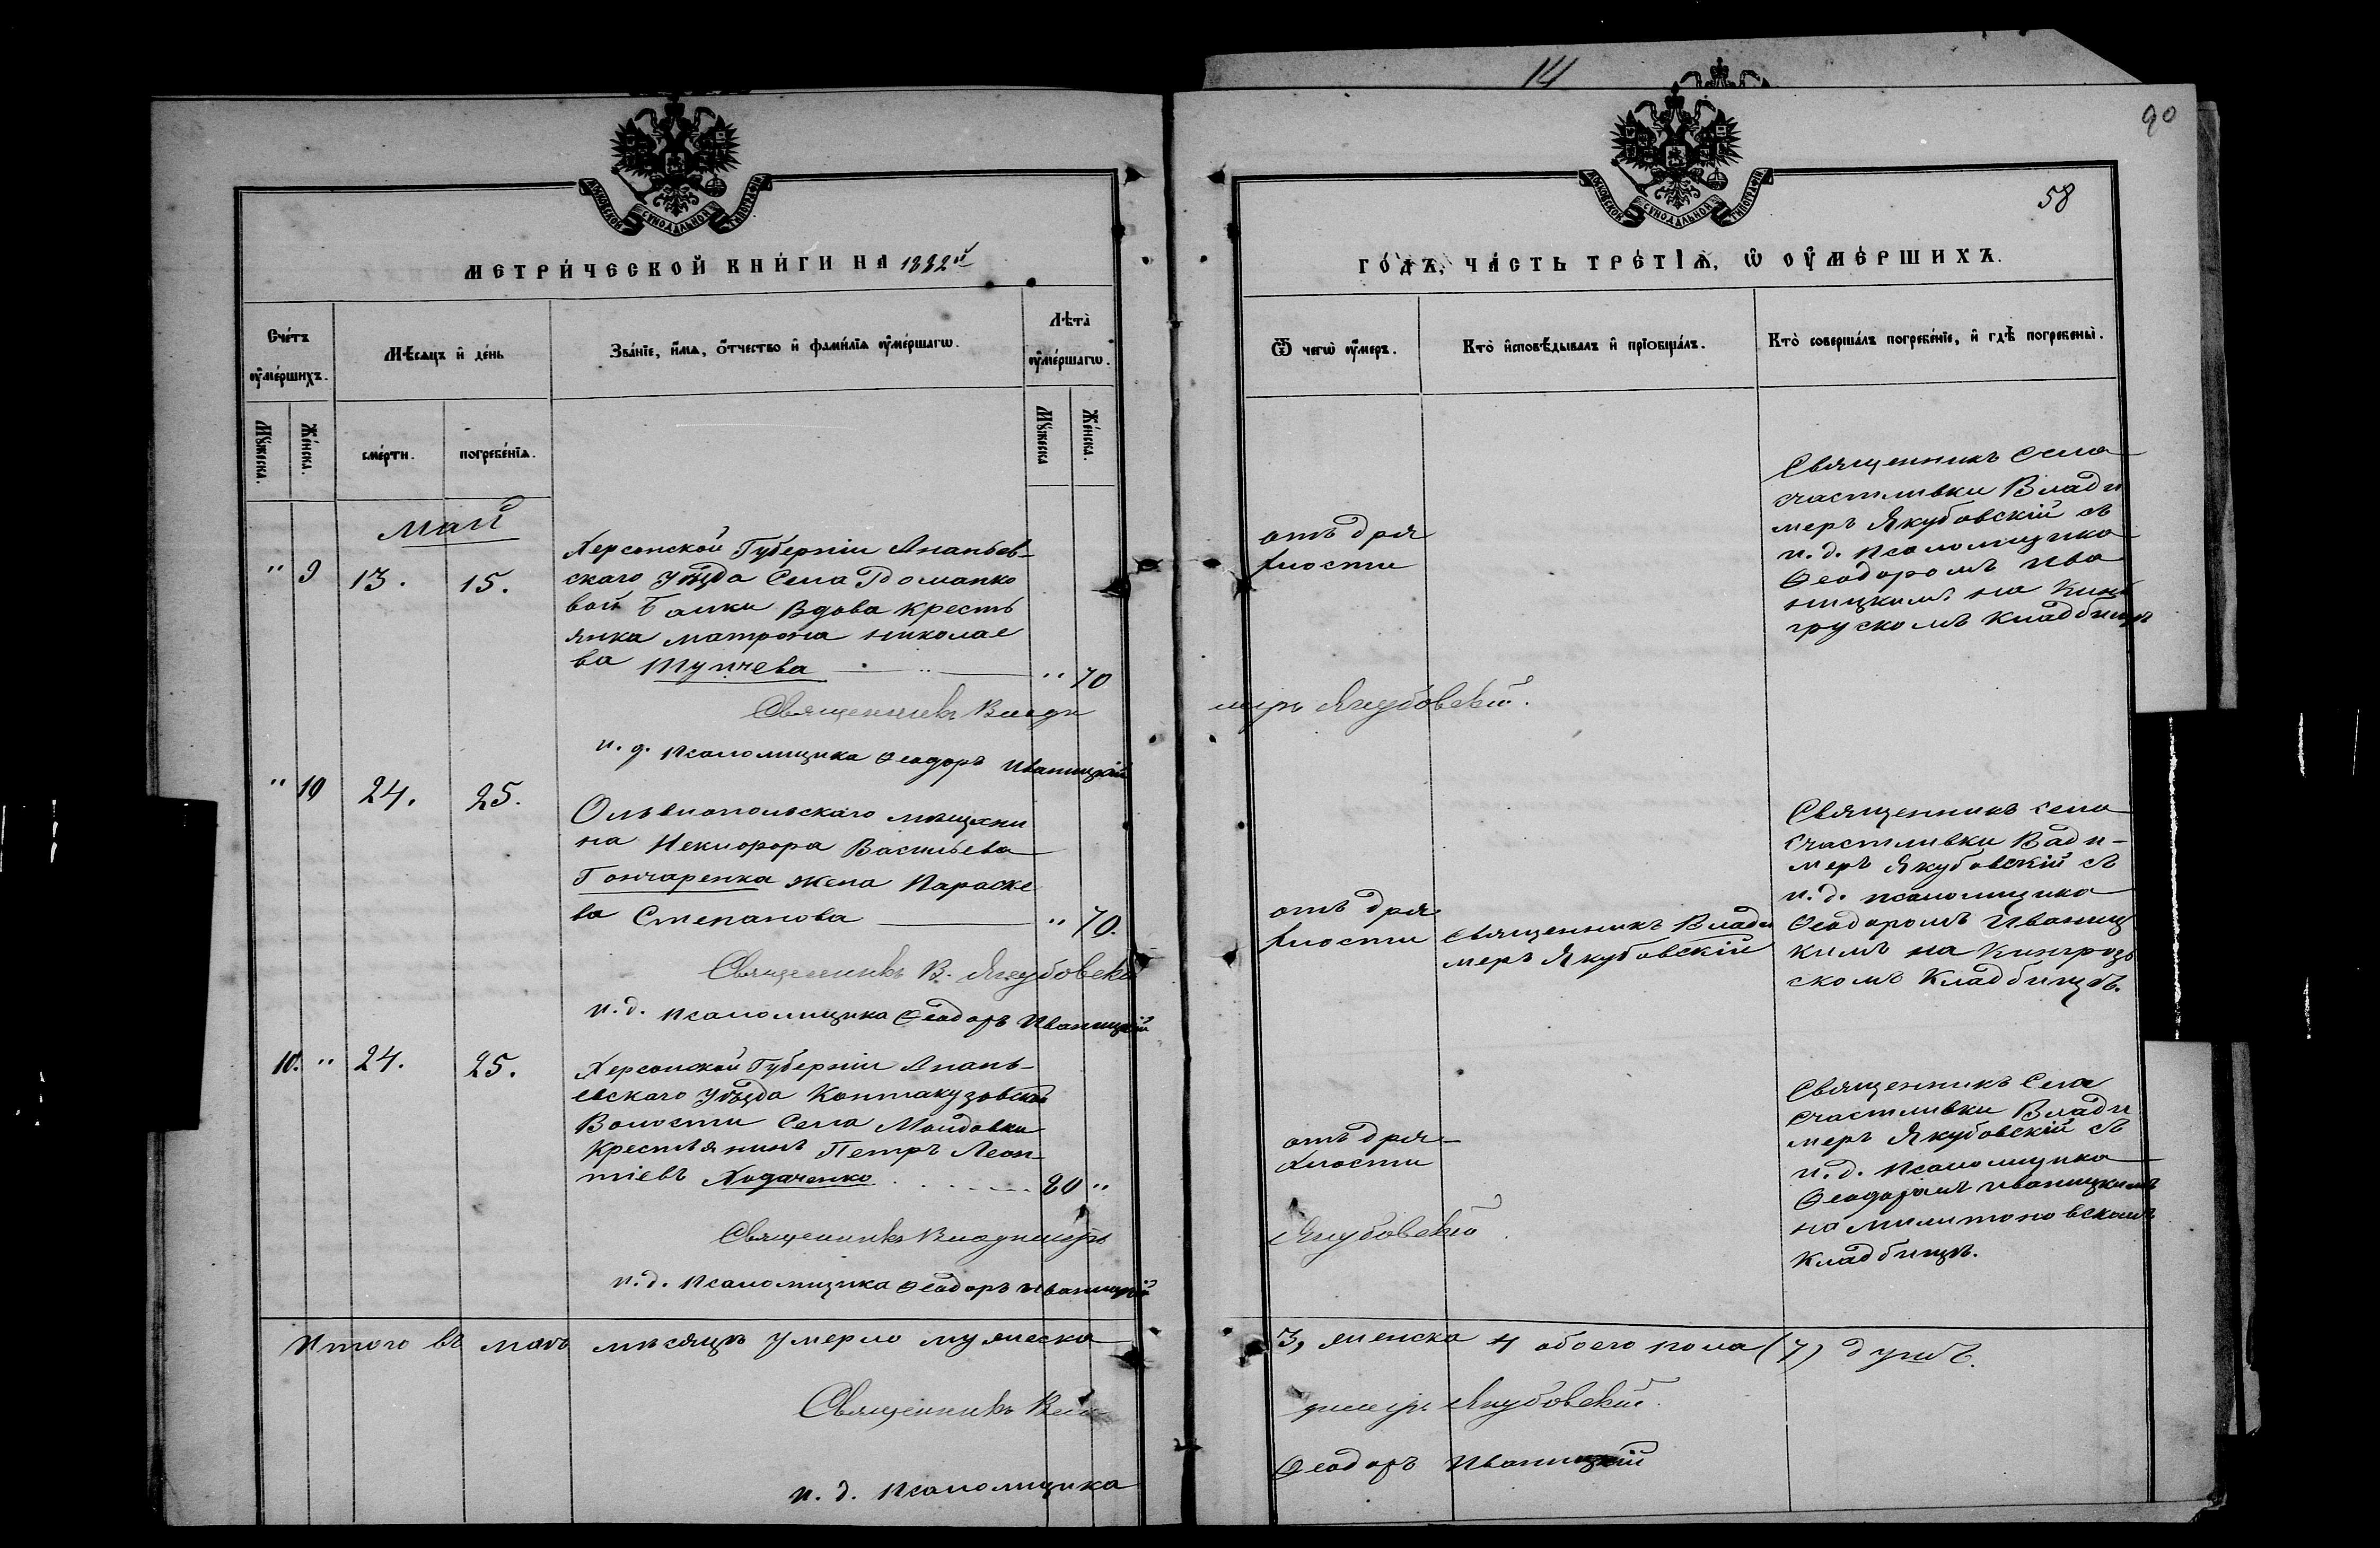 14
90
58
МОСКОВСКОЙ СѴНОДАЛЬНОЙ ТИПОГРАФІИ
МОСКОВСКОЙ СѴНОДАЛЬНОЙ ТИПОГРАФІИ
МЕТРИ́ЧЕСКОЙ КНИ́ГИ НА 1882й
ГО́ДЪ, ЧА́СТЬ ТРЕ́ТІѦ, Ѡ ОУМЕ́РШИХЪ.
Сче́тъ оумершихъ.
Мѣсяцъ и день
Зва́ніе, и́мѧ, о́тчество и фамилія оумершагѡ.
Лѣта̀ оумершагѡ.
Мꙋжеска.
Женска.
смерти.
погребенія.
Мꙋжеска
Женска.
Ѿ чегѡ оумеръ.
Кто̀ исповѣдывалъ и пріобщалъ.
Кто̀ совершалъ погребеніе, и гдѣ погребены.
Май
" 9 13. 15.
Херсонской Губерніи Ананьев-
скаго уѣзда Села Романко
вой Балки Вдова кресть
янка Матрона Николае
ва Тупчева " 70
отъ дря
хлости
Священникъ Села
Счастливки Влади
меръ Якубовскій съ
и. д. псаломщика
Феодоромъ Ива
ницкимъ на Кин
грускомъ кладбищѣ
Священникъ Влади
міръ Якубовскій.
и. д. псаломщика Феодоръ Иваницкій
" 10 24. 25.
Ольвиопольскаго мѣщани
на Некифора Васильева
Гончаренка жена Параске
ва Степанова " 70.
отъ дря
хлости
Священникъ Влади
меръ Якубовскій
Священникъ села
Счастливки Вади-
меръ Якубовскій съ
и. д. псаломщика
Феодоромъ Иваниц
кимъ на Кингруз
скомъ Кладбищѣ.
Священникъ В. Якубовскій
и. д. псаломщика Феодоръ Иваницкій
10. " 24. 25.
Херсонской Губерніи Анань-
евскаго уѣзда Контакузовской
Волости Села Молдовки
Крестьянинъ Петръ Леон
тіевъ Ходаченко 80 "
отъ дря-
хлости
Священникъ Села
Счастливки Влади
меръ Якубовскій съ
и. д. псаломщика
Феодоромъ Иваницкимъ
на Милитоновскомъ
Кладбищѣ.
Священникъ Владиміръ
Якубовскій
и. д. псаломщика Феодоръ Иваницкій
Итого въ маѣ мѣсяцѣ умерло мужеска
3, женска 4 обоего пола (7) душъ.
Священникъ Вла
диміръ Якубовскій.
и. д. псаломщика
Феодоръ Иваницкій